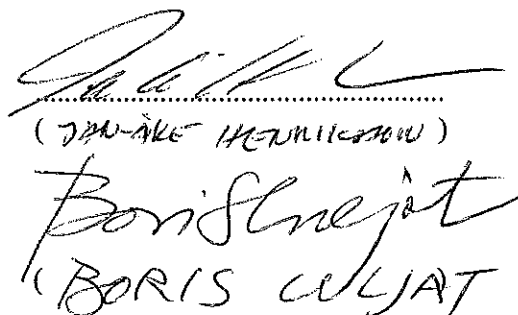 (JAN-ÅKE HENRIKSSON)
Boris Culjat
(BORIS CULJAT